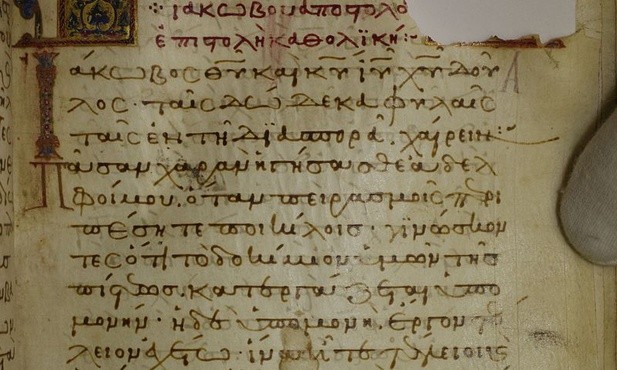 ἰακώβου ἀποστόλο
ἐπιστολὴ καθολική:
Ἰάκωβος θῦ καὶ κῦ ἰῦ χῦ δοῦ
λος· ταῖς δώδεκα φυλαῖς
ταῖς ἐν τῇ διασπορᾷ. χαίρειν:
Πᾶσαν χαρὰν ἡγήσασθε ἀδελ
φοί μου. ὅταν πειρασμοῖς περι
πέσητε ποικίλοις· γινώσκον
τες ὅτι τὸ δοκίμιον ὑμῶν τῆς
πίστεως. κατεργάζεται ὑπο
μονήν· ἡ δὲ ὑπομονὴ. ἔργον
λειον ἐχέτω· ἵνα ἦτε τέλειοι